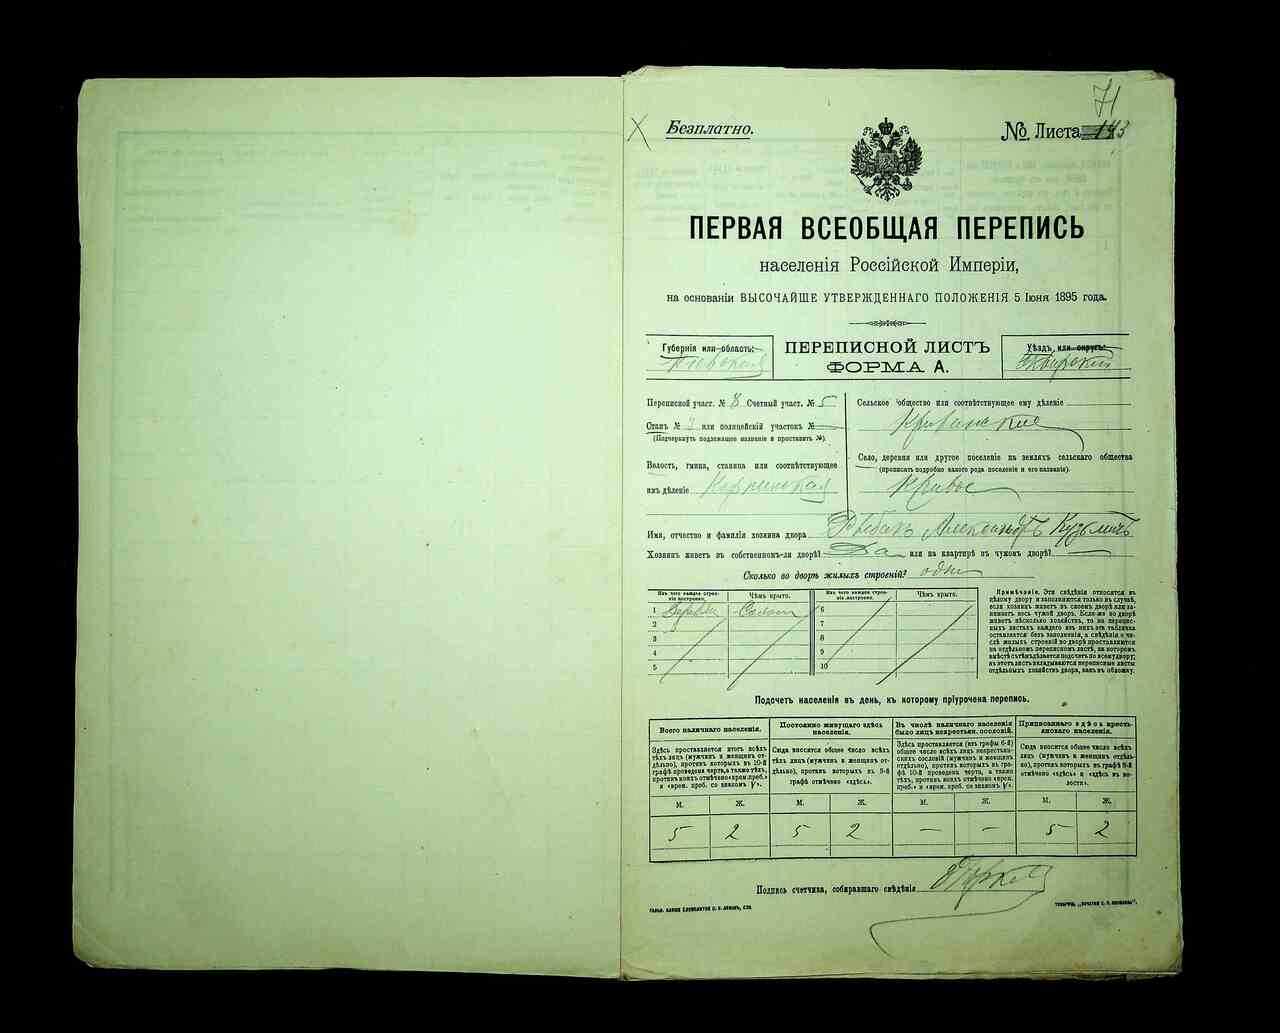 71
Безплатно.
№ Листа 143
ПЕРВАЯ ВСЕОБЩАЯ ПЕРЕПИСЬ
населенія Россійской Имперіи,
на основаніи ВЫСОЧАЙШЕ УТВЕРЖДЕННАГО ПОЛОЖЕНІЯ 5 Іюня 1895 года.
Губернія или область:
Кіевская
ПЕРЕПИСНОЙ ЛИСТЪ
ФОРМА А.
Уѣздъ или округъ:
Сквирскій
Переписной участ. № 8 Счетный участ. № 5
Станъ № 3 или полицейскій участокъ №
(Подчеркнуть подлежащее названіе и проставить №).
Волость, гмина, станица или соотвѣтствующее
имъ дѣленіе
Сельское общество или соотвѣтствующее ему дѣленіе
Кривянское
Село, деревня или другое поселеніе на земляхъ сельскаго общества
(прописать подробно какого рода поселеніе и его названіе).
Кривое
Имя, отчество и фамилія хозяина двора Александръ Кузьмичъ
Хозяинъ живетъ въ собственномъ-ли дворѣ? Да или на квартирѣ въ чужомъ дворѣ?
Сколько во дворѣ жилыхъ строеній? одно
Изъ чего каждое строеніе построено.
Чѣмъ крыто.
Изъ чего каждое строеніе построено.
Чѣмъ крыто.
1 Дерева Солом 6
2 7
3 8
4 9
5 10
Примѣчаніе. Эти свѣдѣнія относятся къ
цѣлому двору и заполняются только въ случаѣ,
если хозяинъ живетъ въ своемъ дворѣ или занимаетъ весь чужой дворъ. Если-же во дворѣ
живетъ нѣсколько хозяйствъ, то на переписныхъ листахъ каждаго изъ нихъ эта табличка
оставляется безъ заполненія, а свѣдѣнія о числѣ жилыхъ строеній во дворѣ проставляются
на отдѣльномъ переписномъ листѣ, на которомъ
вмѣстѣ съ тѣмъ дѣлается подсчетъ по всему двору;
въ этотъ листъ вкладываются переписные листы
отдѣльныхъ хозяйствъ двора, какъ въ обложку.
Подсчетъ населенія въ день, къ которому пріурочена перепись.
Всего наличнаго населенія.
Здѣсь проставляется итогъ всѣхъ
тѣхъ лицъ (мужчинъ и женщинъ отдѣльно), противъ которыхъ въ 10-й
графѣ проведена черта, а также тѣхъ,
противъ коихъ отмѣчено «врем. преб.»
и «врем. преб. со знакомъ V».
Постоянно живущаго здѣсь
населенія.
Сюда вносится общее число всѣхъ
тѣхъ лицъ (мужчинъ и женщинъ отдѣльно), противъ которыхъ въ 9-й
графѣ отмѣчено «здѣсь».
Въ числѣ наличнаго населенія
было лицъ некрестьян. сословій.
Здѣсь проставляется (изъ графы 6-й)
общее число всѣхъ лицъ некрестьянскихъ сословій (мужчинъ и женщинъ
отдѣльно), противъ которыхъ въ графѣ 10-й проведена черта, а также
тѣхъ, противъ коихъ отмѣчено «врем.
преб.» и «врем. преб. со знакомъ V».
Приписаннаго здѣсь крестьянскаго населенія.
Сюда вносится общее число всѣхъ
лицъ (мужчинъ и женщинъ отдѣльно), противъ которыхъ въ графѣ 8-й
отмѣчено «здѣсь» и «здѣсь въ волости».
М. Ж. М. Ж. М. Ж. М. Ж.
5 2 5 2 — — 5 2
Подпись счетчика, собиравшаго свѣдѣнія